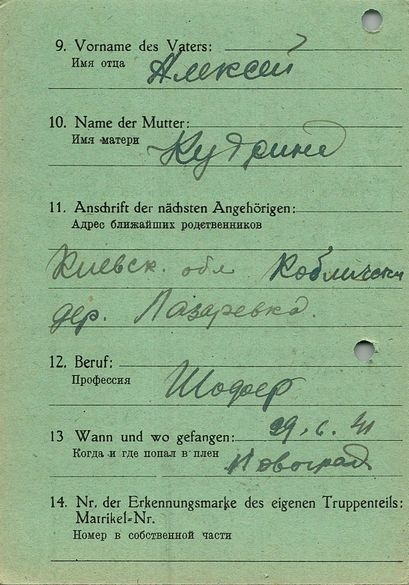 9. Vorname des Vaters:
Имя отца
Алексей
10. Name der Mutter:
Имя матери
Кудрина
11. Anschrift der nächsten Angehörigen:
Адрес ближайших родственников
Киевск. обл
дер. Лазаревка.
12. Beruf:
Профессия
Шофер
13 Wann und wo gefangen: 29. 6. 41
Когда и где попал в плен Новоград
14. Nr. der Erkennungsmarke des eigenen Truppenteils:
Matrikel-Nr.
Номер в собственной части